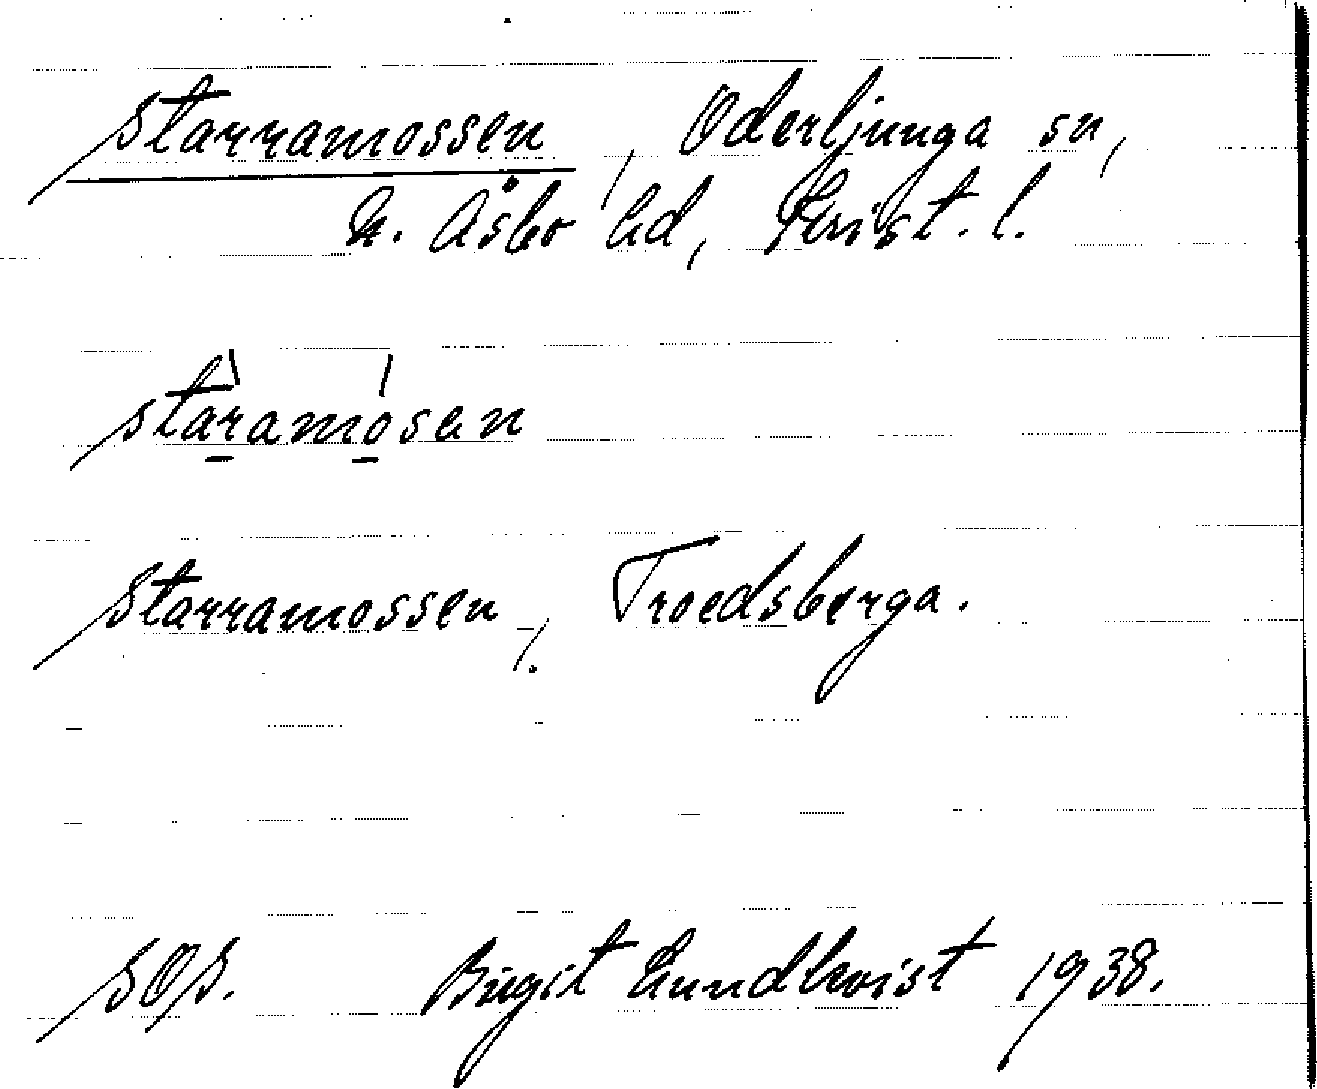 Starramossen, Oderljunga sn,
N. Åsbo hd, Krist. l.
staramosen
Starramossen, Troedsberga.
SOS. Birgit Lundkvist 1938.